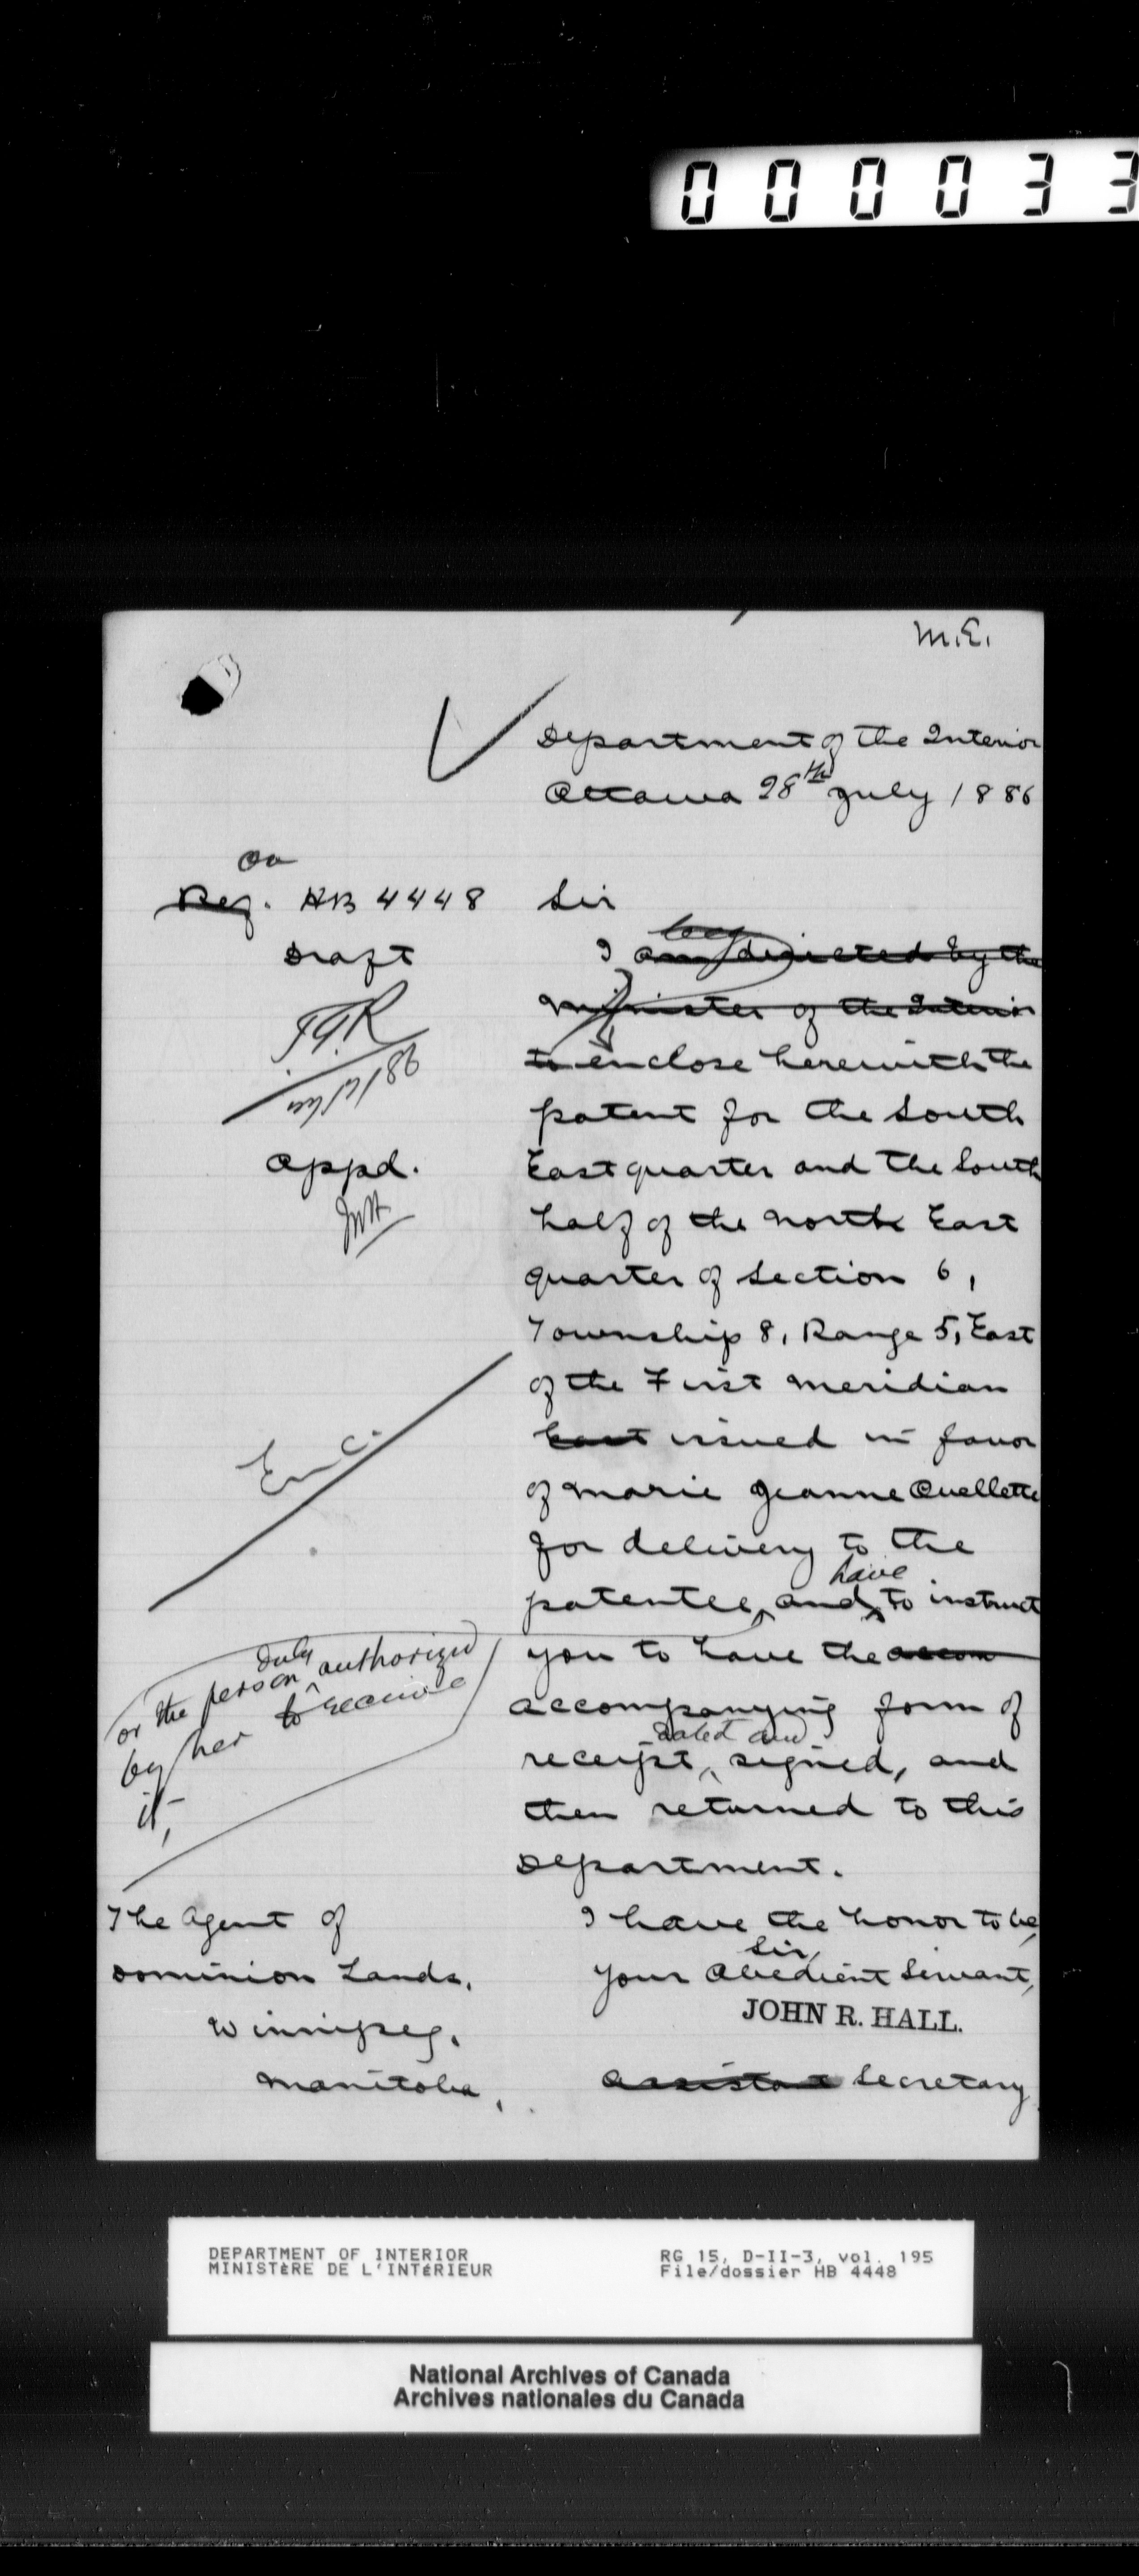 0 0 0 0 3 3
M.E.
Department of the Interior
Ottawa 28th July 1886
On
Reg. HB 4448
Sir
Draft
beg
I am directed by the
Minister of the Interior
to enclose herewith the
patent for the South
Appd.
East quarter and the South
half of the North East
quarter of Section 6,
Township 8, Range 5, East
of the First Meridian
East issued in favor
Enc.
of Marie Jeanne Ouellette
for delivery to the
have
patentee, and to instruct
or the person duly authorized
by her to receive
it,
you to have the accom
accompanying form of
dated and
receipt, signed, and
then returned to this
Department.
The Agent of
Dominion Lands,
Winnipeg.
Manitoba,
I have the honor to be,
Sir,
Your Obedient Servant,
JOHN R. HALL.
Assistant Secretary
DEPARTMENT OF INTERIOR
MINISTÈRE DE L'INTÉRIEUR
RG 15, D-II-3, vol. 195
File/dossier HB 4448
National Archives of Canada
Archives nationales du Canada